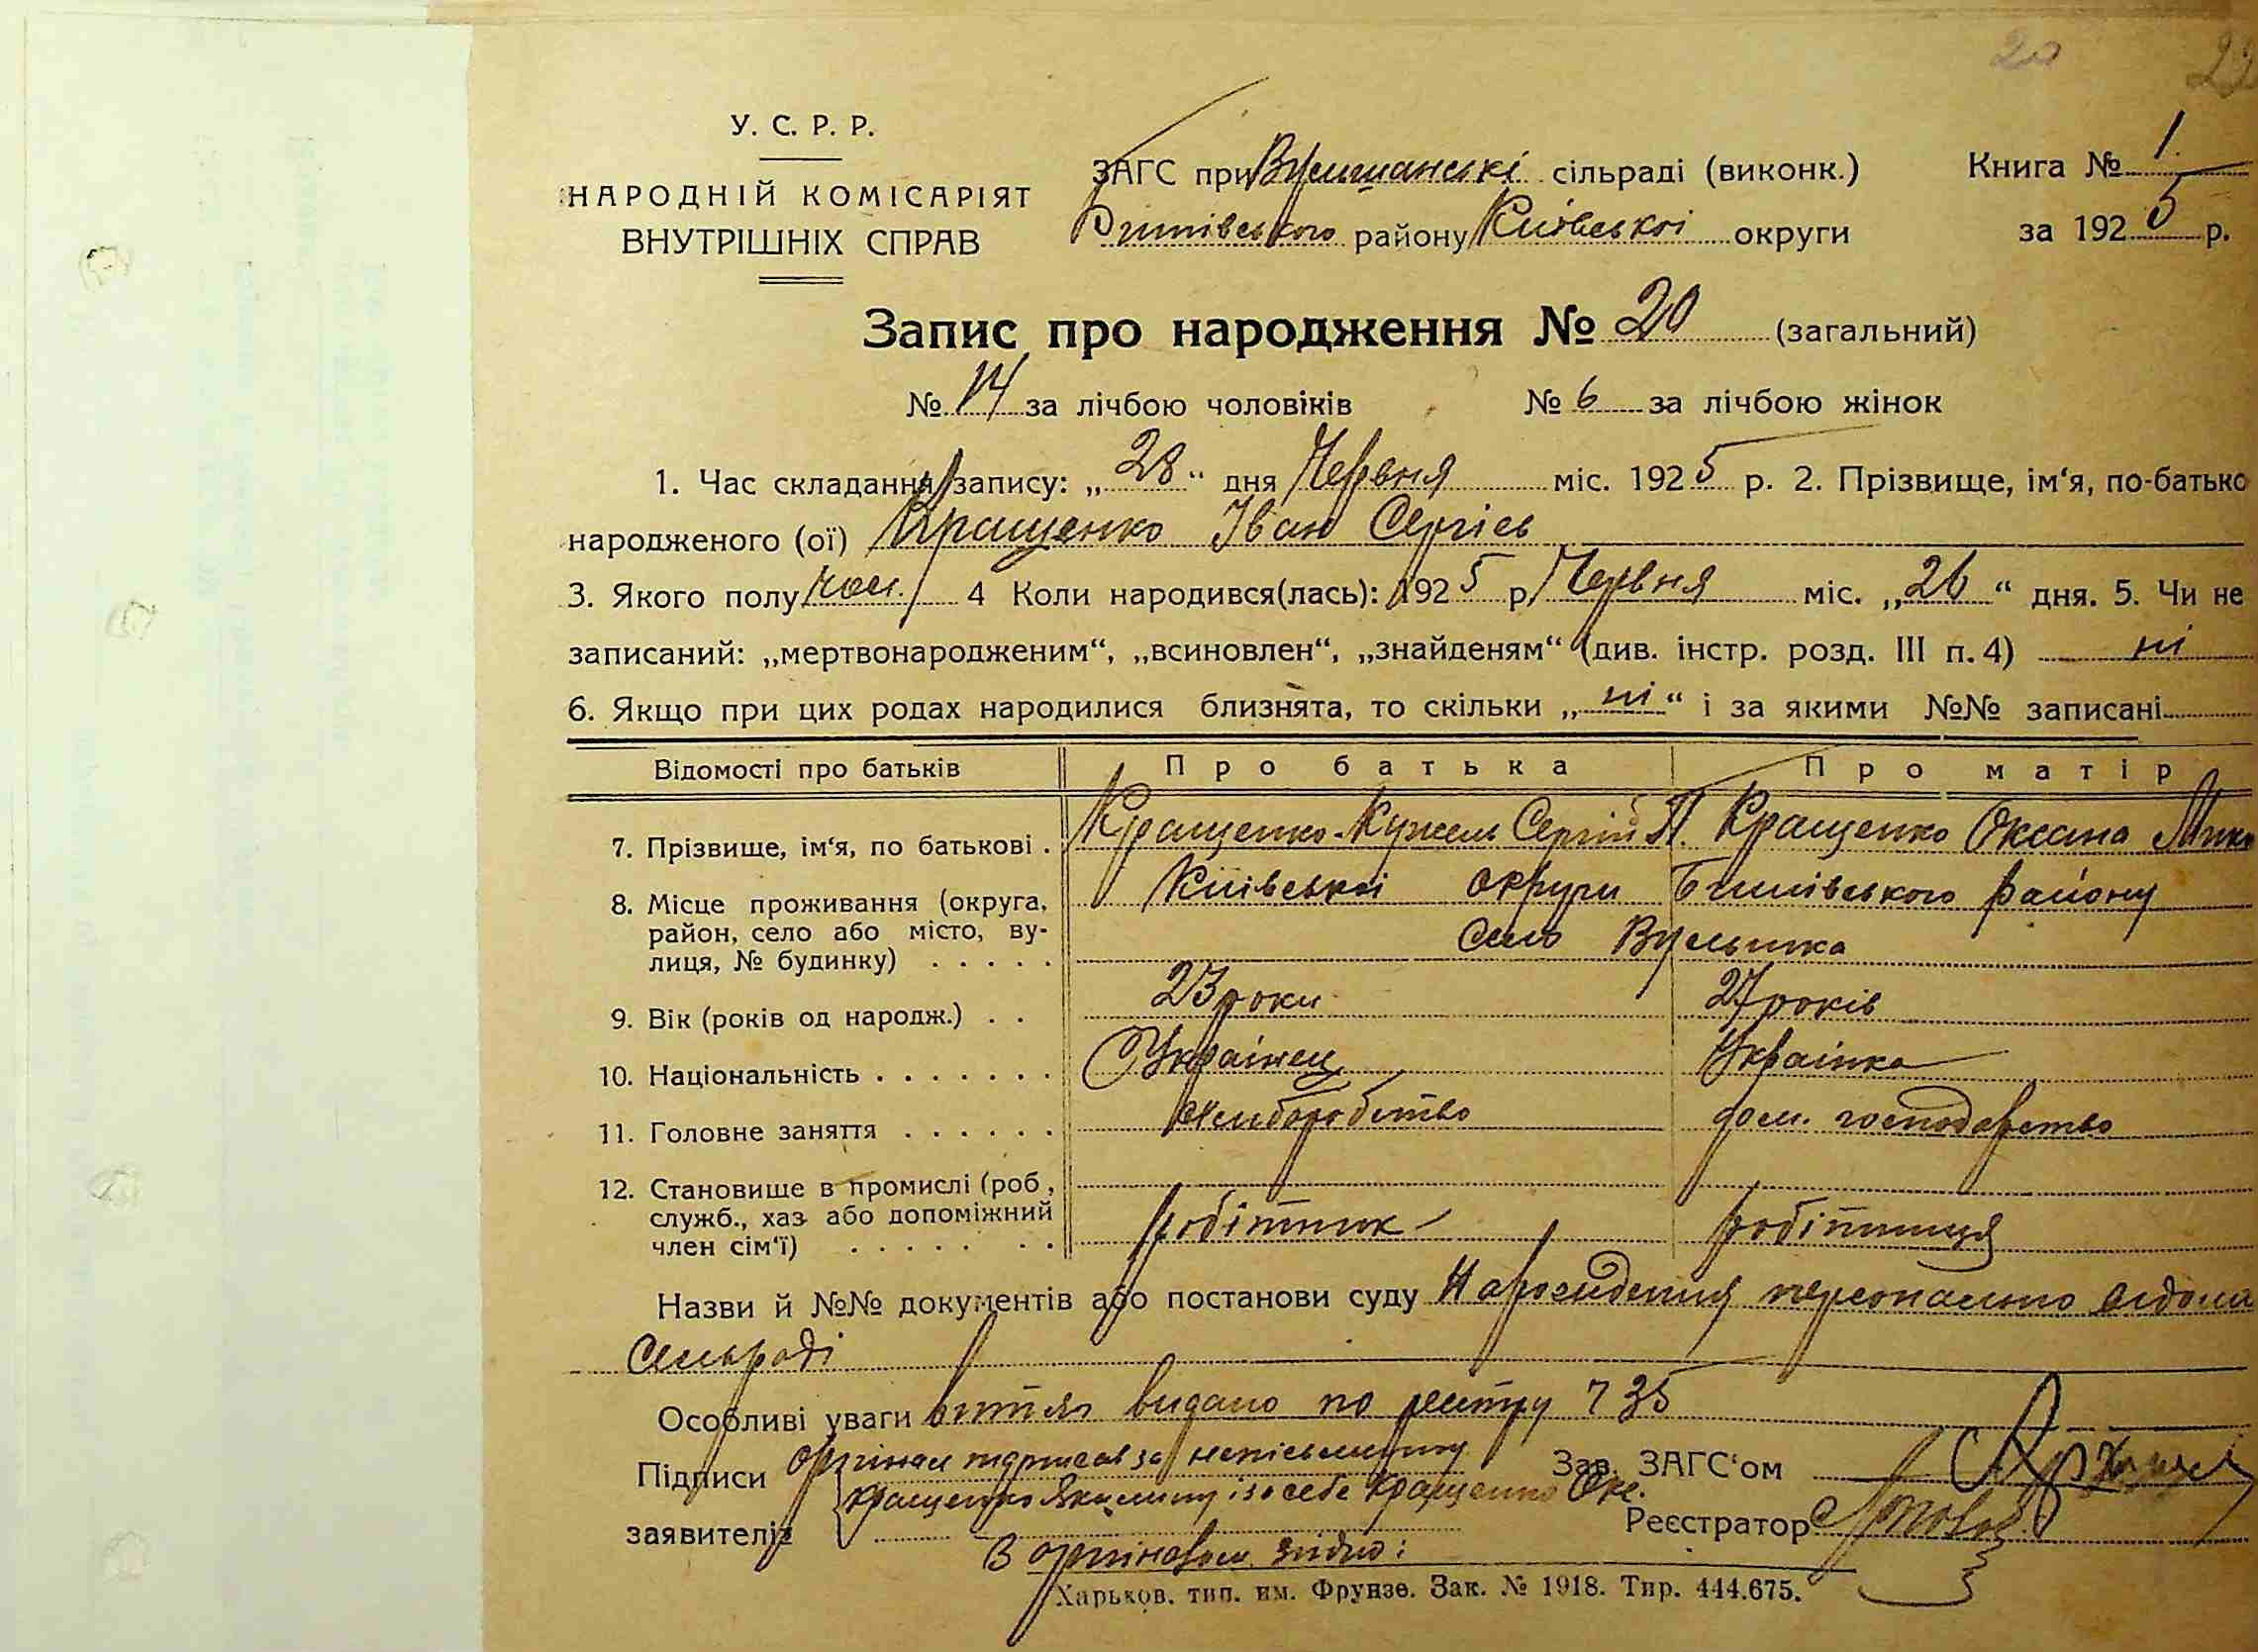 20 23
У. С. Р. Р.
НАРОДНІЙ КОМІСАРІЯТ
ВНУТРІШНІХ СПРАВ
ЗАГС при сільраді (виконк.)
району Київської округи
Книга № 1
за 1925 р.
Запис про народження № 20 (загальний)
№ 14 за лічбою чоловіків № 6 за лічбою жінок
1. Час складання запису: „28“ дня Червня міс. 1925 р. 2. Прізвище, ім‘я, по-батько
народженого (ої) Кращенко Іван Сергієв
3. Якого полу чол. 4 Коли народився(лась): 1925 р. Червня міс. „26“ дня. 5. Чи не
записаний: „мертвонародженим“, „всиновлен“, „знайденям“ (див. інстр. розд. III п. 4) ні
6. Якщо при цих родах народилися близнята, то скільки „ні“ і за якими №№ записані
Відомості про батьків Про батька Про матір
7. Прізвище, ім‘я, по батькові . Кращенко-Кужель Сергій П. Кращенко Оксана Мик
8. Місце проживання (округа, район, село або місто, ву-лиця, № будинку) . . . . . Київської округи району
Село
9. Вік (років од народж.) . . 23 роки 27 років
10. Національність . . . . . . . Українец Українка
11. Головне заняття . . . . . . хліборобство дом. господарство
12. Становище в промислі (роб, служб., хаз. або допоміжний член сім‘ї) . . . . . . . робітник робітниця
Назви й №№ документів або постанови суду Народження персонально відома
Сельраді
Особливі уваги витяг видано по реєстру 735
Підписи заявителів
оргінал підписав за неписьменну
Кращенко Якилину і за себе Кращенко Окс.
З оргіналом згідно:
Зав. ЗАГС‘ом
Реєстратор
Харьков. тип. им. Фрунзе. Зак. № 1918. Тир. 444.675.